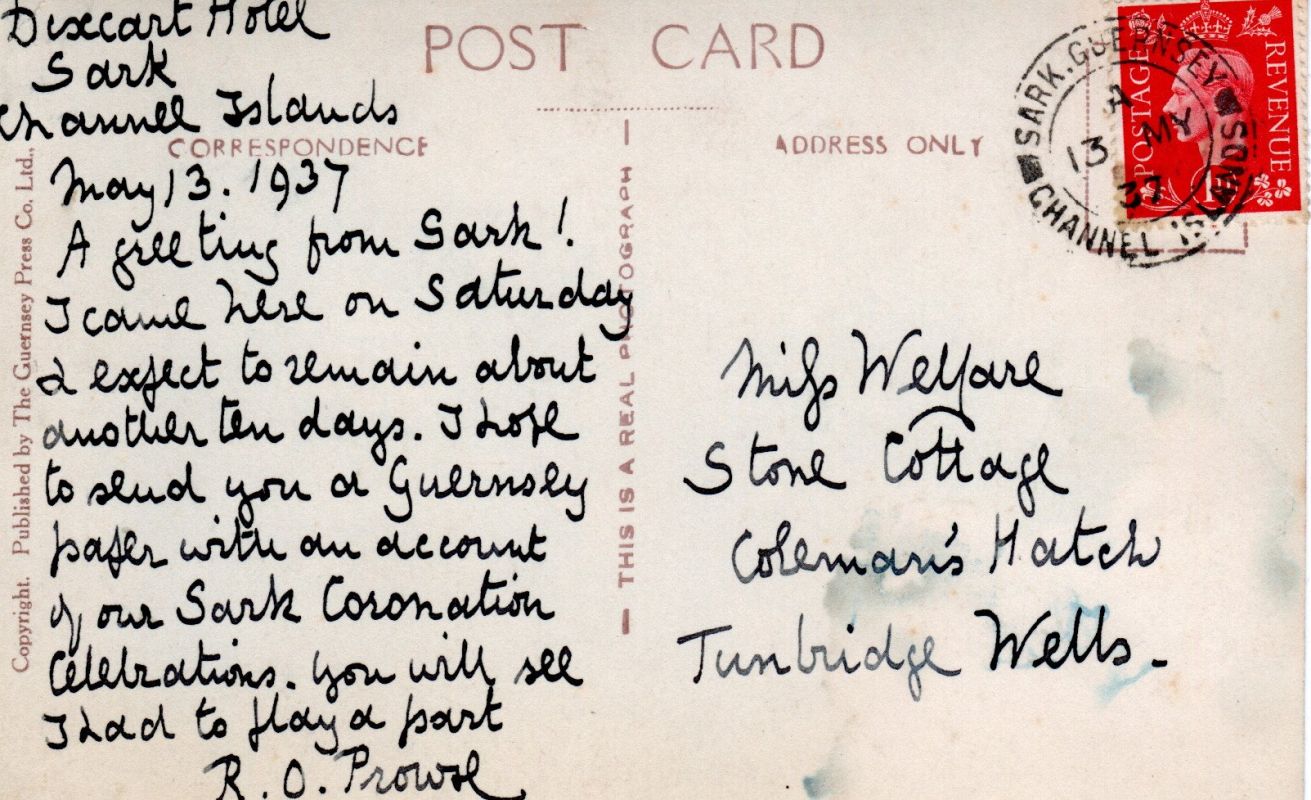 Dixcart Hotel
Sark
Channel Islands
POST CARD
CORRESPONDENCE
ADDRESS ONLY
May 13. 1937
A greeting from Sark!
I came here on Saturday
& expect to remain about
another ten days. I hope
to send you a Guernsey
paper with an account
of our Sark Coronation
Celebrations. you will see
I had to play a part
R. O. Prowse
Copyright. Published by The Guernsey Press Co. Ltd.,
THIS IS A REAL PHOTOGRAPH
SARK. GUERNSEY
A
13 MY
37
CHANNEL ISLANDS
POSTAGE
REVENUE
1D
Miss Welfare
Stone Cottage
Coleman's Hatch
Tunbridge Wells.